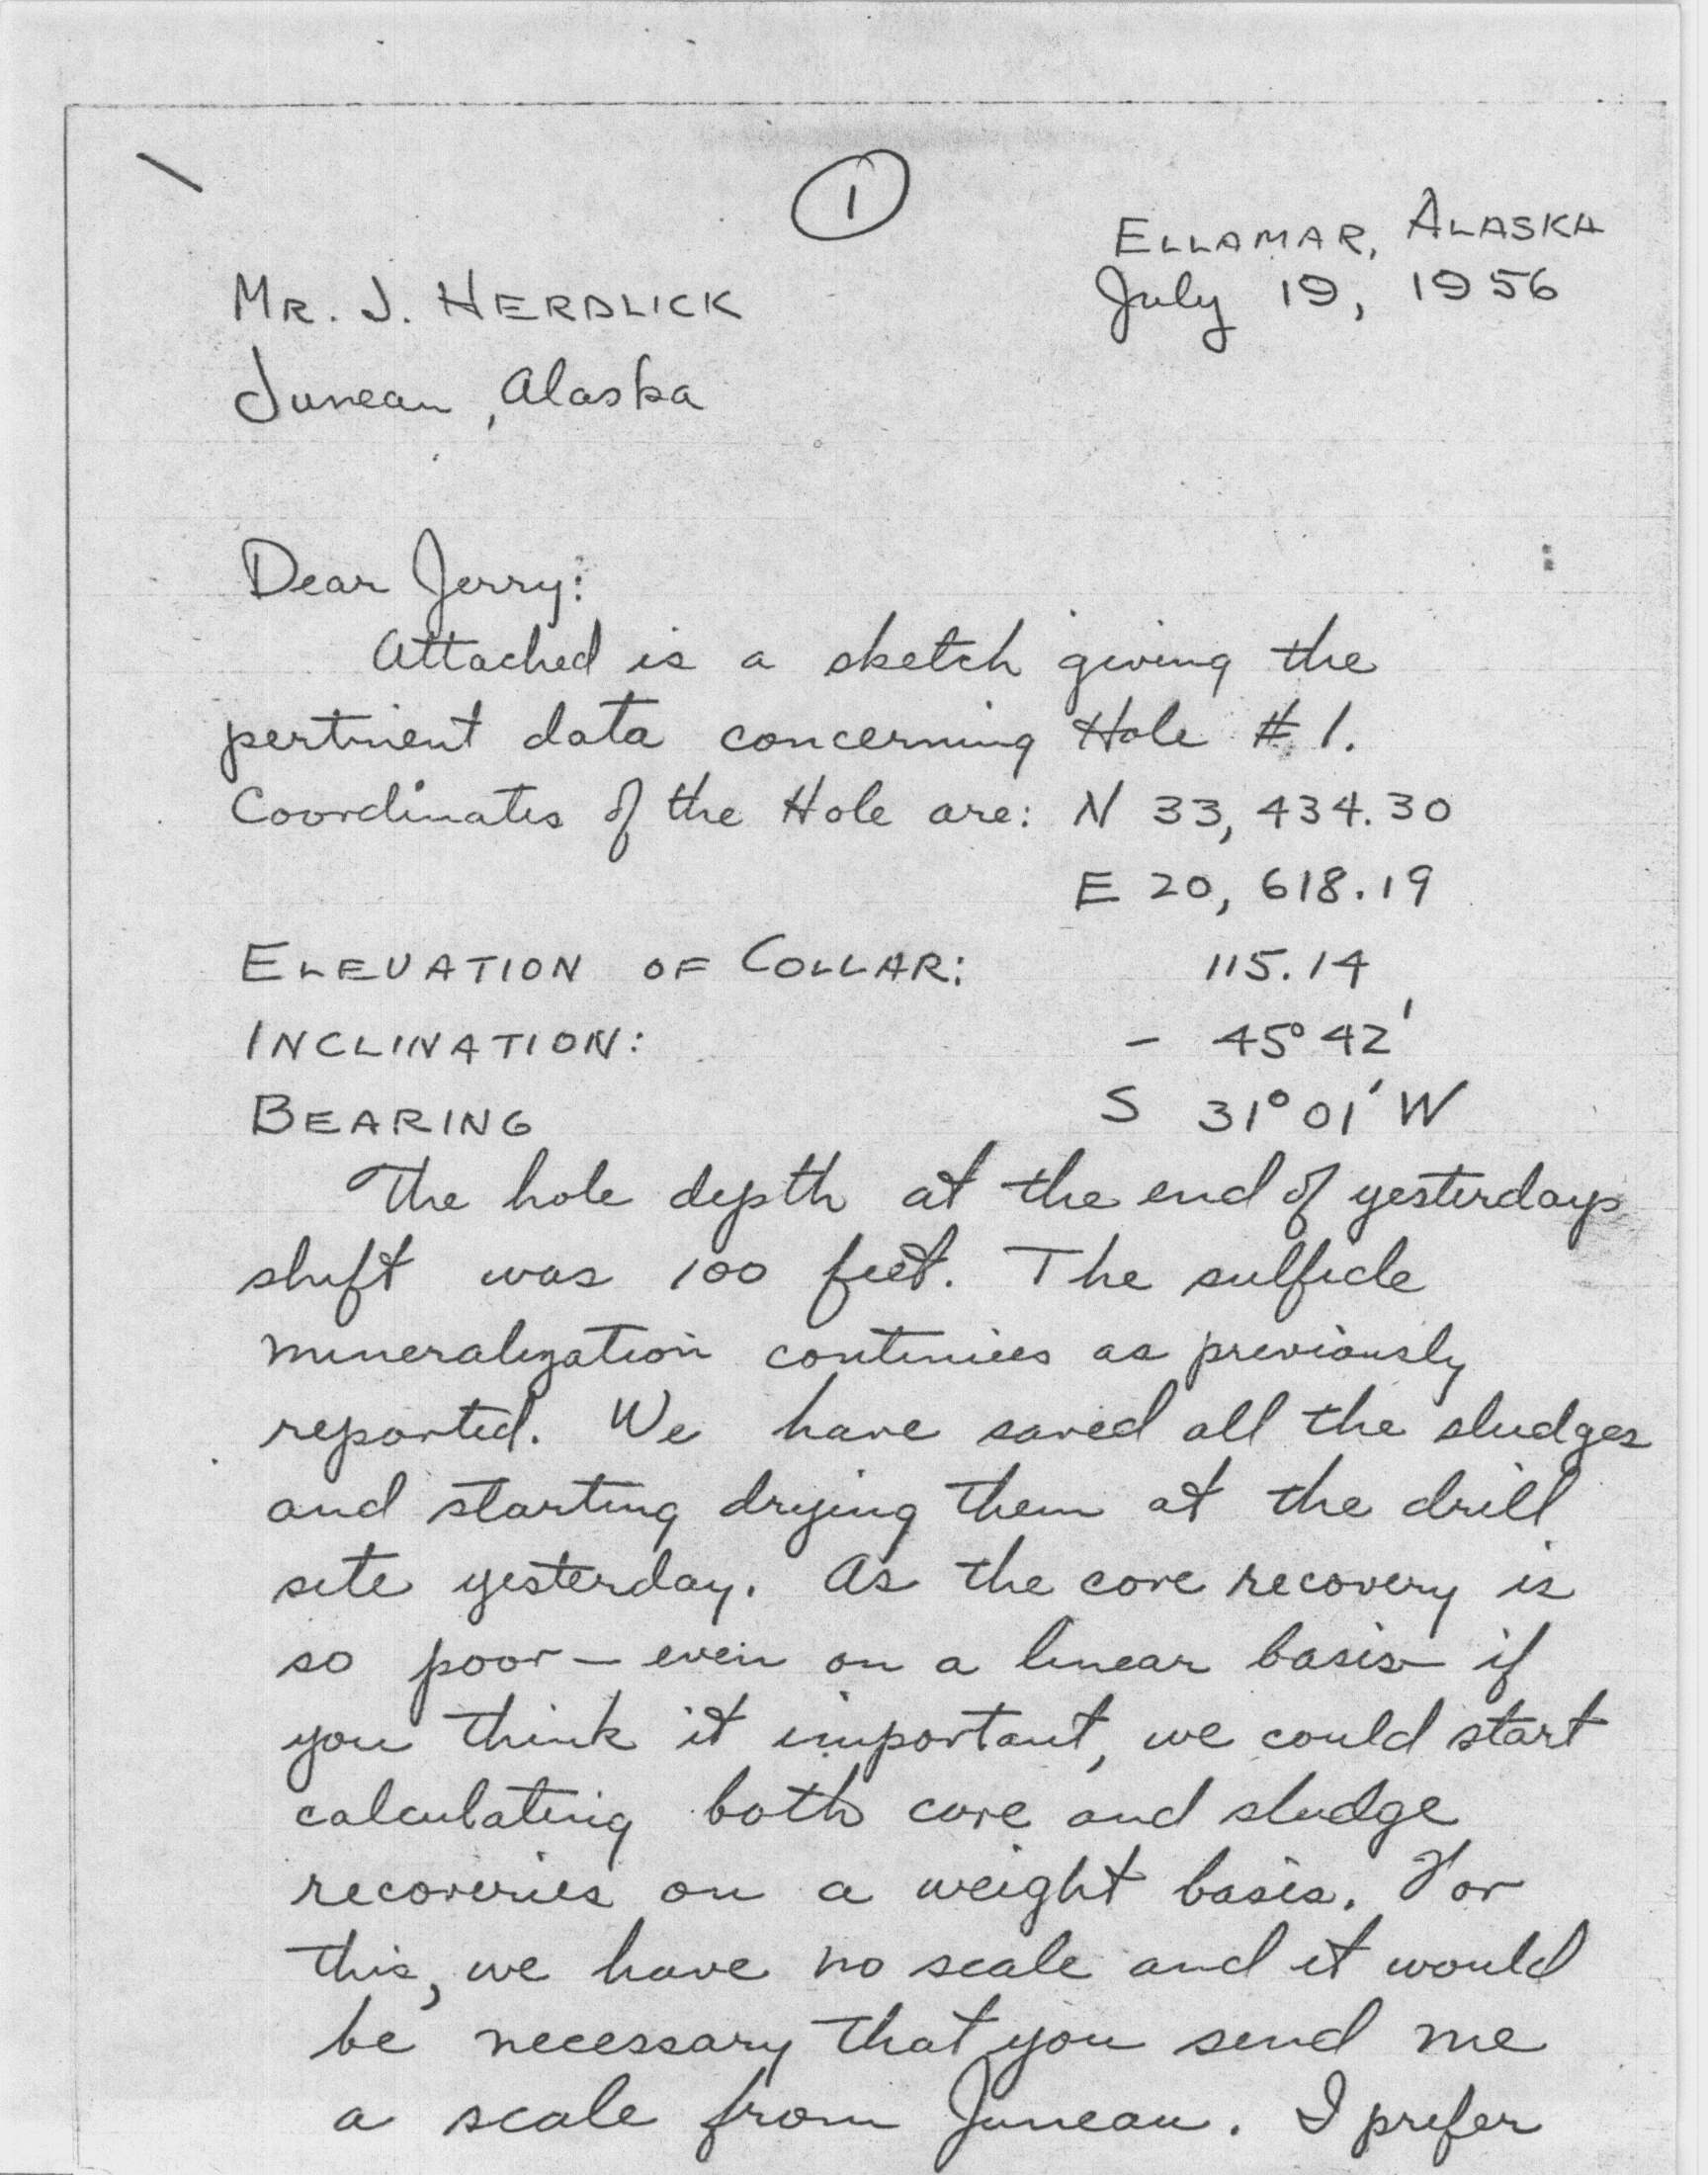 1
ELLAMAR, ALASKA
July 19, 1956
MR. J. HERDLICK
Juneau, Alaska
Dear Jerry:
Attached is a sketch giving the
pertinent data concerning Hole # 1.
Coordinates of the Hole are: N 33,434.30
E 20,618.19
ELEVATION OF COLLAR: 115.14
INCLINATION: - 45° 42'
BEARING S 31° 01' W
The hole depth at the end of yesterdays
shift was 100 feet. The sulfide
mineralization continues as previously
reported. We have saved all the sludges
and starting drying them at the drill
site yesterday. As the core recovery is
so poor — even on a linear basis — if
you think it important, we could start
calculating both core and sludge
recoveries on a weight basis. For
this, we have no scale and it would
be necessary that you send me
a scale from Juneau. I prefer